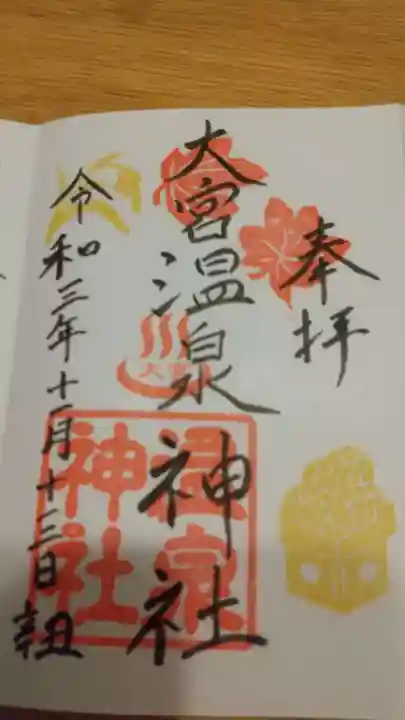 奉拝
大宮温泉神社
大宮
温泉
神社
令和三年十一月十三日 辛丑